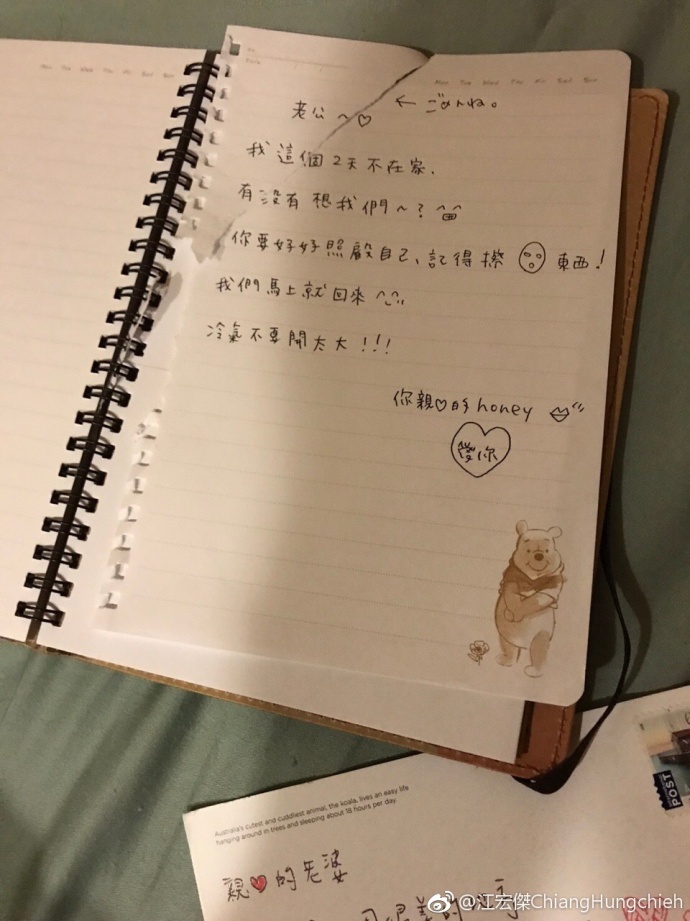 Mon Tue Wed Thu Fri Sat Sun
No.
Date
Mon Tue Wed Thu Fri Sat Sun
老公～♡ ← ごめんね。
我這個2天不在家.
有沒有想我們～? ^^
你要好好照顧自己、記得擦 東西!
我們馬上就回來 ^^
冷氣不要開太大!!!
你親♡的honey
愛你
POST
Australia's cutest and cuddliest animal, the koala, lives an easy life
hanging around in trees and sleeping about 18 hours per day.
親♥的老婆
@江宏傑ChiangHungchieh